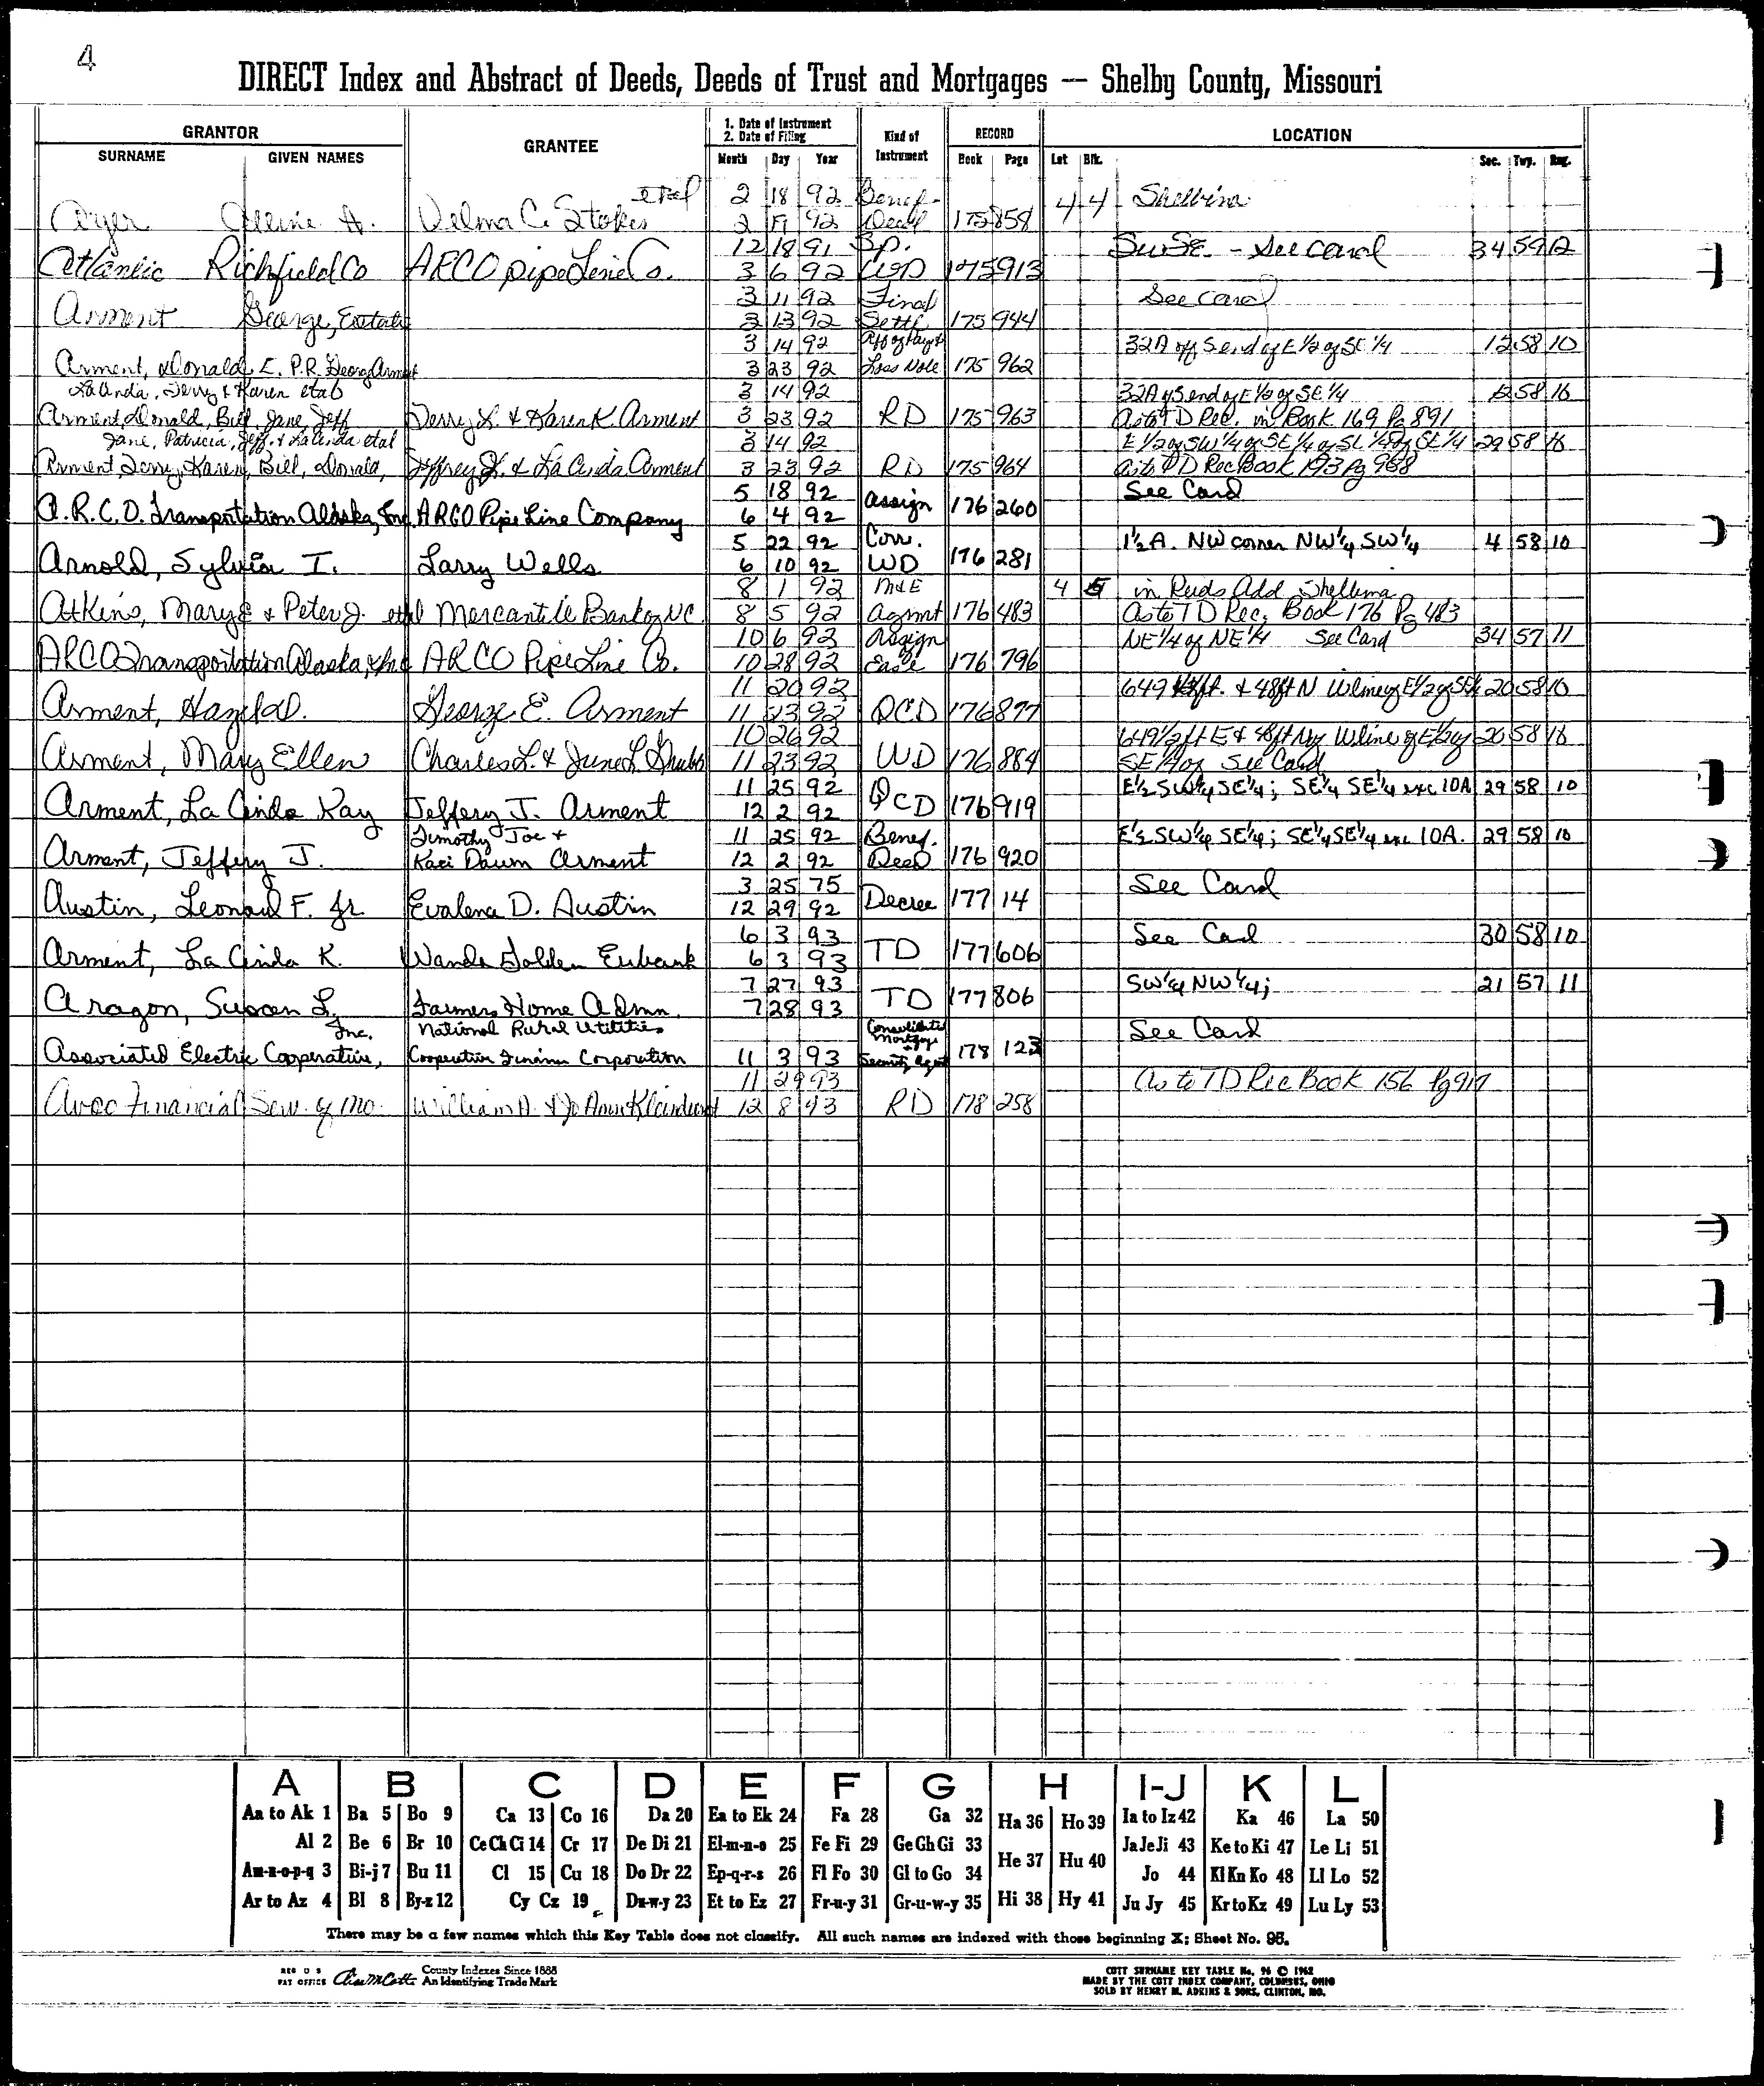 4
DIRECT Index and Abstract of Deeds, Deeds of Trust and Mortgages — Shelby County, Missouri
GRANTOR
SURNAME GIVEN NAMES
GRANTEE
1. Date of Instrument
2. Date of Filing
Month Day Year
Kind of Instrument
RECORD
Book Page
Lot Blk.
LOCATION
Sec. Twp. Rng.
etal 2 18 92 Benef. 4 4 Shelbina
Ayer A. Velma C. Stokes 2 19 92 Deed 175 858
12 18 91 Sp. SWSE - See Card 34 59 12
Atlantic Richfield Co ARCO pipe Line Co. 3 6 92 WD 175 913
3 11 92 Final See Card
Arment George, Estate 3 13 92 Settl 175 944
3 14 92 Aff of 32A off S end of E 1/2 of SE 1/4 12 58 10
Arment, Donald E. P.R. George Arment 3 23 92 Loss Note 175 962
LaCinda, Jerry & Karen etal 3 14 92 32A of S end of E 1/2 of SE 1/4 12 58 10
Arment, Donald, Bill, Jane, Jeff Jerry L. & Karen K Arment 3 23 92 RD 175 963 As to TD Rec. in Book 169 Pg 891
Jane, Patricia, Jeff, & LaCinda etal 3 14 92 E 1/2 of SW 1/4 of SE 1/4 SE 1/4 29 58 10
Arment, Jerry, Karen, Bill, Donald, Jeffrey J. & La Cinda Arment 3 23 92 RD 175 964 As to TD Rec Book 193 Pg 988
5 18 92 See Card
A.R.C.O. Transportation Alaska, Inc ARCO Pipe Line Company 6 4 92 Assign 176 260
5 22 92 Corr. 1 1/2 A. NW corner NW 1/4 SW 1/4 4 58 10
Arnold, Sylvia I. Larry Wells 6 10 92 WD 176 281
8 1 92 M&E 4 5 in Reids Add Shelbina
Atkins, Mary E & Peter J. etal Mercantile Bank of NC 8 5 92 Agmnt 176 483 As to TD Rec. Book 176 Pg 483
10 6 92 Assign NE 1/4 of NE 1/4 See Card 34 57 11
ARCO Transportation Alaska, Inc ARCO Pipe Line Co. 10 28 92 Ease 176 796
11 20 92 649 ft. & 48 ft N W line of E 1/2 of SE 1/4 20 58 10
Arment, Hazel D. George E. Arment 11 23 92 QCD 176 877
10 26 92 649 1/2 ft E & 48 ft N of W line of E 1/2 of 20 58 10
Arment, Mary Ellen Charles L. & June L. Grubb 11 23 92 WD 176 884 SE 1/4 of See Card
11 25 92 E 1/2 SW 1/4 SE 1/4; SE 1/4 SE 1/4 exc 10A 29 58 10
Arment, La Cinda Kay Jeffery J. Arment 12 2 92 QCD 176 919
Timothy Joe & 11 25 92 Benef. E 1/2 SW 1/4 SE 1/4; SE 1/4 SE 1/4 exc 10A. 29 58 10
Arment, Jeffery J. Kaci Dawn Arment 12 2 92 Deed 176 920
3 25 75 See Card
Austin, Leonard F. Jr. Evalena D. Austin 12 29 92 Decree 177 14
6 3 93 See Card 30 58 10
Arment, La Cinda K. Wanda Golden Eubank 6 3 93 TD 177 606
7 27 93 SW 1/4 NW 1/4; 21 57 11
Aragon, Susan L. Farmers Home Admn. 7 28 93 TD 177 806
Inc. National Rural Utilities Consolidated Mortgage + See Card
Associated Electric Cooperative, Cooperative Finance Corporation 11 3 93 Security Agmt 178 123
11 29 93 As to TD Rec Book 156 Pg 917
Avco Financial Serv. of Mo. William A. & Jo Ann 12 8 93 RD 178 258
A B C D E F G H I-J K L
Aa to Ak 1 Ba 5 Bo 9 Ca 13 Co 16 Da 20 Ea to Ek 24 Fa 28 Ga 32 Ha 36 Ho 39 Ia to Iz 42 Ka 46 La 50
Al 2 Be 6 Br 10 Ce Ch Ci 14 Cr 17 De Di 21 El-m-n-o 25 Fe Fi 29 Ge Gh Gi 33 He 37 Hu 40 Ja Je Ji 43 Ke to Ki 47 Le Li 51
Am-n-o-p-q 3 Bi-j 7 Bu 11 Cl 15 Cu 18 Do Dr 22 Ep-q-r-s 26 Fl Fo 30 Gl to Go 34 Jo 44 Kl Kn Ko 48 Ll Lo 52
Ar to Az 4 Bl 8 By-z 12 Cy Cz 19 Du-w-y 23 Et to Ez 27 Fr-u-y 31 Gr-u-w-y 35 Hi 38 Hy 41 Ju Jy 45 Kr to Kz 49 Lu Ly 53
There may be a few names which this Key Table does not classify. All such names are indexed with those beginning X; Sheet No. 95.
REG U S PAT OFFICE County Indexes Since 1888 An Identifying Trade Mark
COTT SURNAME KEY TABLE No. 96 © 1962
MADE BY THE COTT INDEX COMPANY, COLUMBUS, OHIO
SOLD BY HENRY M. ADKINS & SONS, CLINTON, MO.